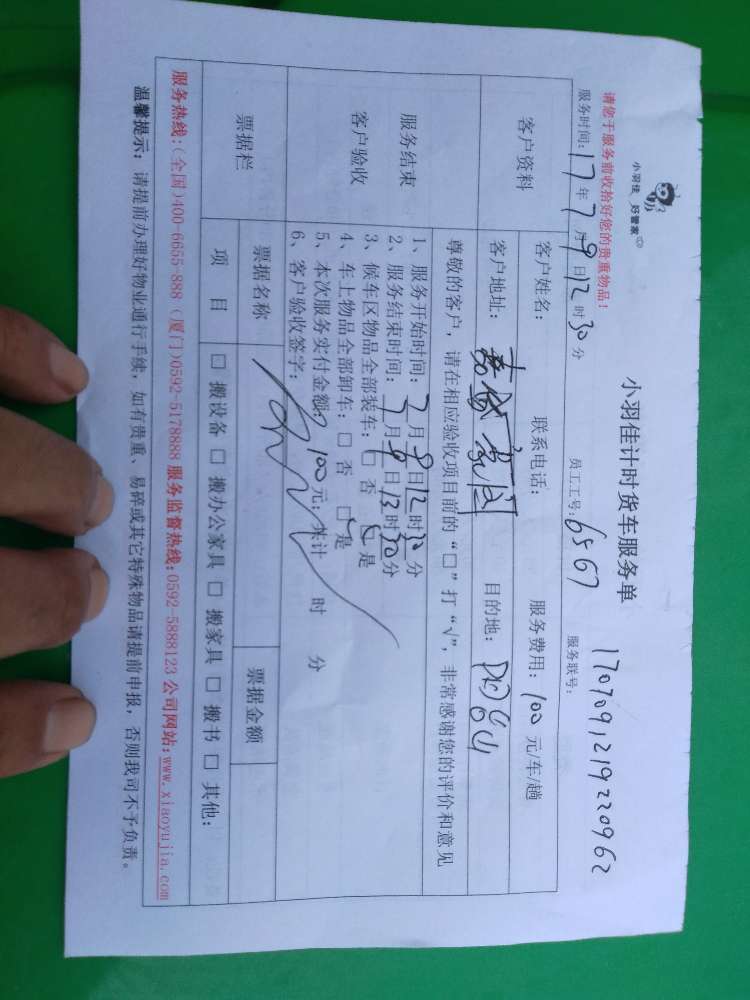 小羽佳 好管家
小羽佳计时货车服务单
请您于服务前收拾好您的贵重物品!
服务时间: 17年7月9日12时30分 员工工号: 6567 服务联号: 1707091219220962
客户资料 客户姓名: 联系电话: 服务费用: 100元/车/趟
客户地址: 目的地:
服务结束 客户验收
尊敬的客户,请在相应验收项目前的“□”打“√”,非常感谢您的评价和意见
1、服务开始时间: 7月9日12时30分
2、服务结束时间: 7月9日13时30分
3、候车区物品全部装车: □否 □是
4、车上物品全部卸车: □否 □是
5、本次服务实付金额: 100元; 共计 时 分
6、客户验收签字:
票据栏 票据名称 票据金额
项目 □搬设备 □搬办公家具 □搬家具 □搬书 □其他:
服务热线:(全国)400-6655-888 (厦门)0592-5178888 服务监督热线:0592-5888123 公司网站:www.xiaoyujia.com
温馨提示: 请提前办理好物业通行手续,如有贵重、易碎或其它特殊物品请提前申报,否则我司不予负责。